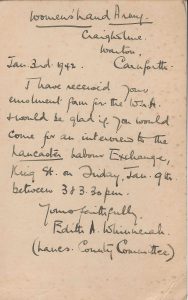 Women's Land Army.
Craigholme.
Warton,
Jan. 3rd. 1942. Carnforth.
I have received your
enrolment form for the W.L.A.
& would be glad if you would
come for an interview to the
Lancaster Labour Exchange,
King St. on Friday, Jan. 9th.
between 3 & 3.30 p.m.
Yours faithfully,
Edith A. Whinnerah.
(Lancs. County Committee)